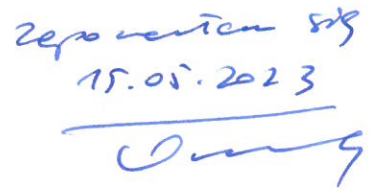 zapoznałem się
15.05.2023